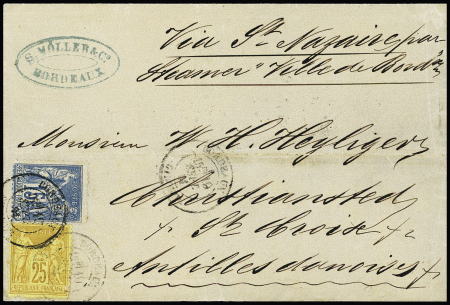 S. MÖLLER & Cº
BORDEAUX
Via St. Nazaire par
Steamer "Ville de Bord
Monsieur W. H. Heyliger
Christiansted
St Croix
Antilles danoises
15
25